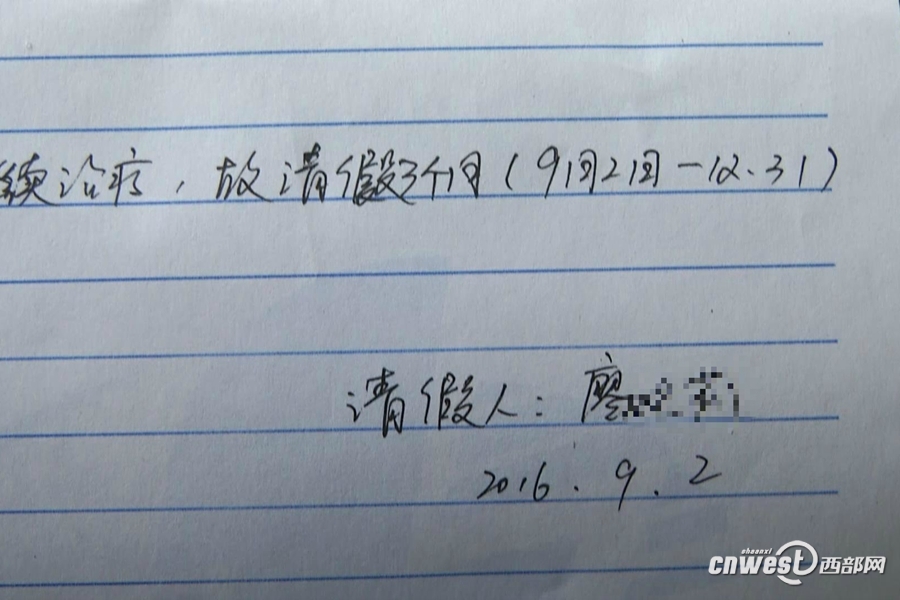 续治疗，故请假3个月（9月2日－12.31）
请假人：廖
2016.9.2
shaanxi
cnwest 西部网